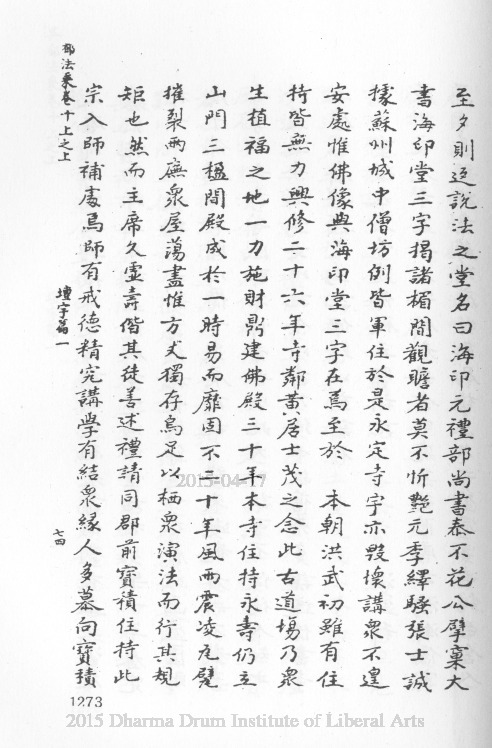 至夕則迳說法之堂名曰海印元禮部尚書泰不花公擘窠大
書海印堂三字揭諸楣間觀瞻者莫不忻艷元季繹騷張士誠
據蘇州城中僧坊例皆軍住於是永定寺宇亦毀壞講衆不遑
安處惟佛像與海印堂三字在焉至於　本朝洪武初雖有住
持皆無力興修二十六年寺鄰黄居士茂之念此古道場乃衆
生植福之地一力施財鼎建佛殿三十年本寺住持永壽仍立
山門三楹間殿成於一時易而靡固不三十年風雨震凌瓦甓
摧裂兩廡衆屋蕩盡惟方丈獨存烏足以栖衆演法而行其規
矩也然而主席久虛壽偕其徒善述禮請同郡前寶積住持此
宗入師補處焉師有戒德精究講學有結衆緣人多慕向寶積
鄧法乘卷十上之上
壇宇篇一
七四
1273
2015-04-17
2015 Dharma Drum Institute of Liberal Arts